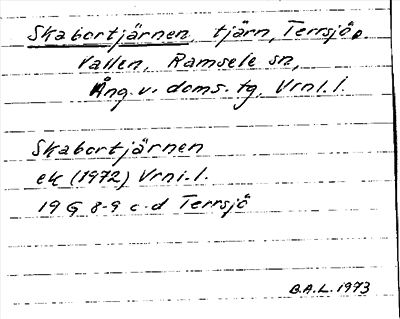 Skabortjärnen, tjärn, Terrsjö,
Vallen, Ramsele sn,
Ång. v. doms. tg, Vrnl. l.
Skabortjärnen
ek (1972) Vrnl. l.
19 G 8-9 c-d Terrsjö
B.A.L. 1973